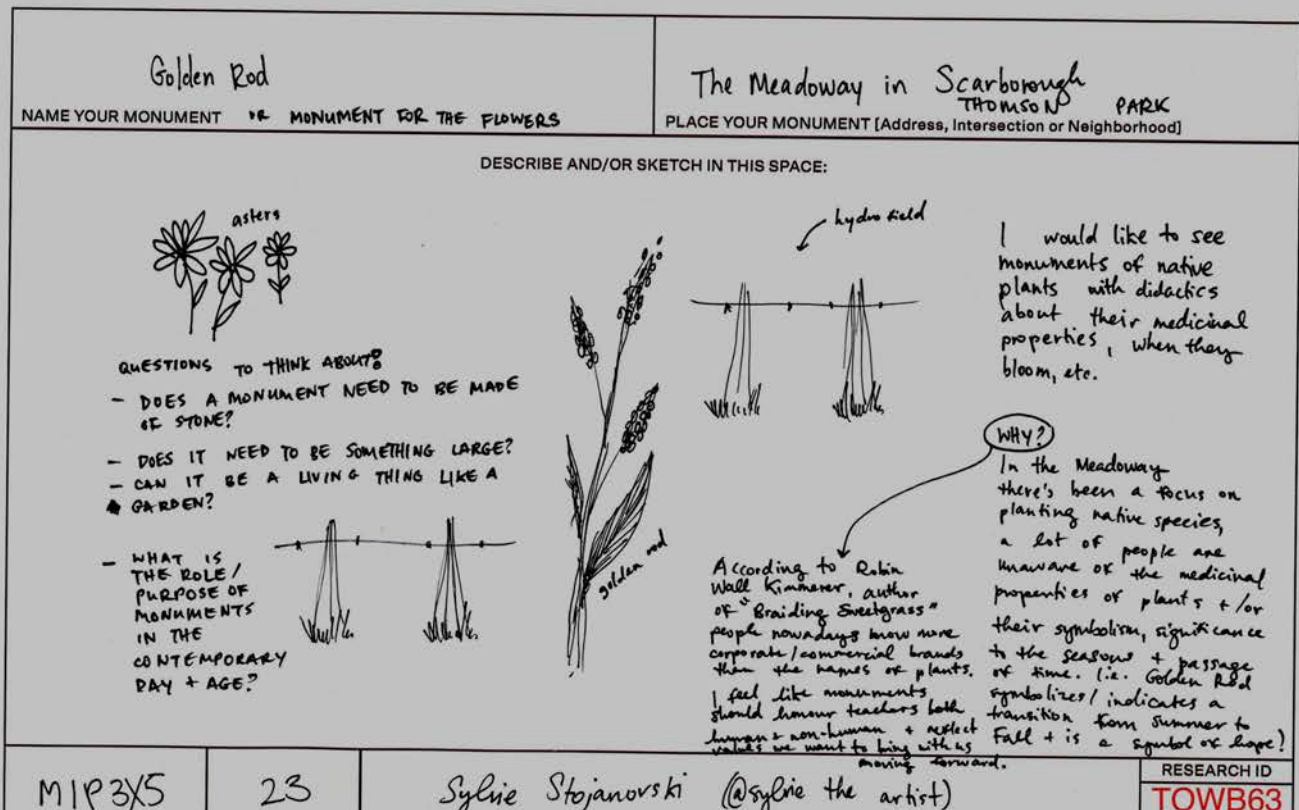 Golden Rod
NAME YOUR MONUMENT OR MONUMENT FOR THE FLOWERS
The Meadoway in Scarborough
THOMSON PARK
PLACE YOUR MONUMENT [Address, Intersection or Neighborhood]
DESCRIBE AND/OR SKETCH IN THIS SPACE:
asters
QUESTIONS TO THINK ABOUT?
- DOES A MONUMENT NEED TO BE MADE
OF STONE?
- DOES IT NEED TO BE SOMETHING LARGE?
- CAN IT BE A LIVING THING LIKE A
GARDEN?
- WHAT IS
THE ROLE/
PURPOSE OF
MONUMENTS
IN THE
CONTEMPORARY
DAY + AGE?
golden rod
hydro field
I would like to see
monuments of native
plants with didactics
about their medicinal
properties, when they
bloom, etc.
WHY?
In the Meadoway
there's been a focus on
planting native species,
a lot of people are
unaware of the medicinal
properties of plants + /or
their symbolism, significance
to the seasons + passage
of time. (i.e. Golden Rod
symbolizes/ indicates a
transition from summer to
Fall + is a symbol of hope!
According to Robin
Wall Kimmerer, author
of "Braiding Sweetgrass"
people nowadays know more
corporate/commercial brands
than the names of plants.
I feel like monuments
should honour teachers both
human + non-human + reflect
values we want to bring with us
moving forward.
M1P3X5
23
Sylvie Stojanovski (@sylvie the artist)
RESEARCH ID
TOWB63